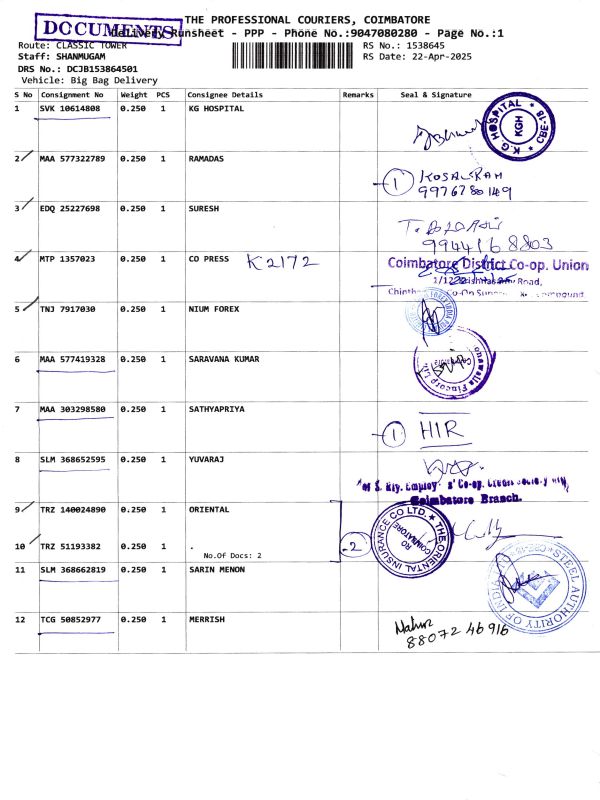 THE PROFESSIONAL COURIERS, COIMBATORE
DOCUMENTS
Delivery Runsheet - PPP - Phone No.:9047080280 - Page No.:1
Route: CLASSIC TOWER
RS No.: 1538645
Staff: SHANMUGAM
RS Date: 22-Apr-2025
DRS No.: DCJB153864501
Vehicle: Big Bag Delivery
S No Consignment No Weight PCS Consignee Details Remarks Seal & Signature
1 SVK 10614808 0.250 1 KG HOSPITAL
K.G. HOSPITAL * CBE-18 *
KGH
2 MAA 577322789 0.250 1 RAMADAS
1
9976780149
3 EDQ 25227698 0.250 1 SURESH
9944168803
4 MTP 1357023 0.250 1 CO PRESS K2172
Coimbatore District Co-op. Union
Road,
5 TNJ 7917030 0.250 1 NIUM FOREX
6 MAA 577419328 0.250 1 SARAVANA KUMAR
Fincorp
7 MAA 303298580 0.250 1 SATHYAPRIYA
1 HIR
8 SLM 368652595 0.250 1 YUVARAJ
Coimbatore Branch.
9 TRZ 140024890 0.250 1 ORIENTAL
THE ORIENTAL INSURANCE CO LTD.
RO
COIMBATORE
10 TRZ 51193382 0.250 1 .
No.Of Docs: 2
2
11 SLM 368662819 0.250 1 SARIN MENON
STEEL AUTHORITY OF INDIA
12 TCG 50852977 0.250 1 MERRISH
88072 46916